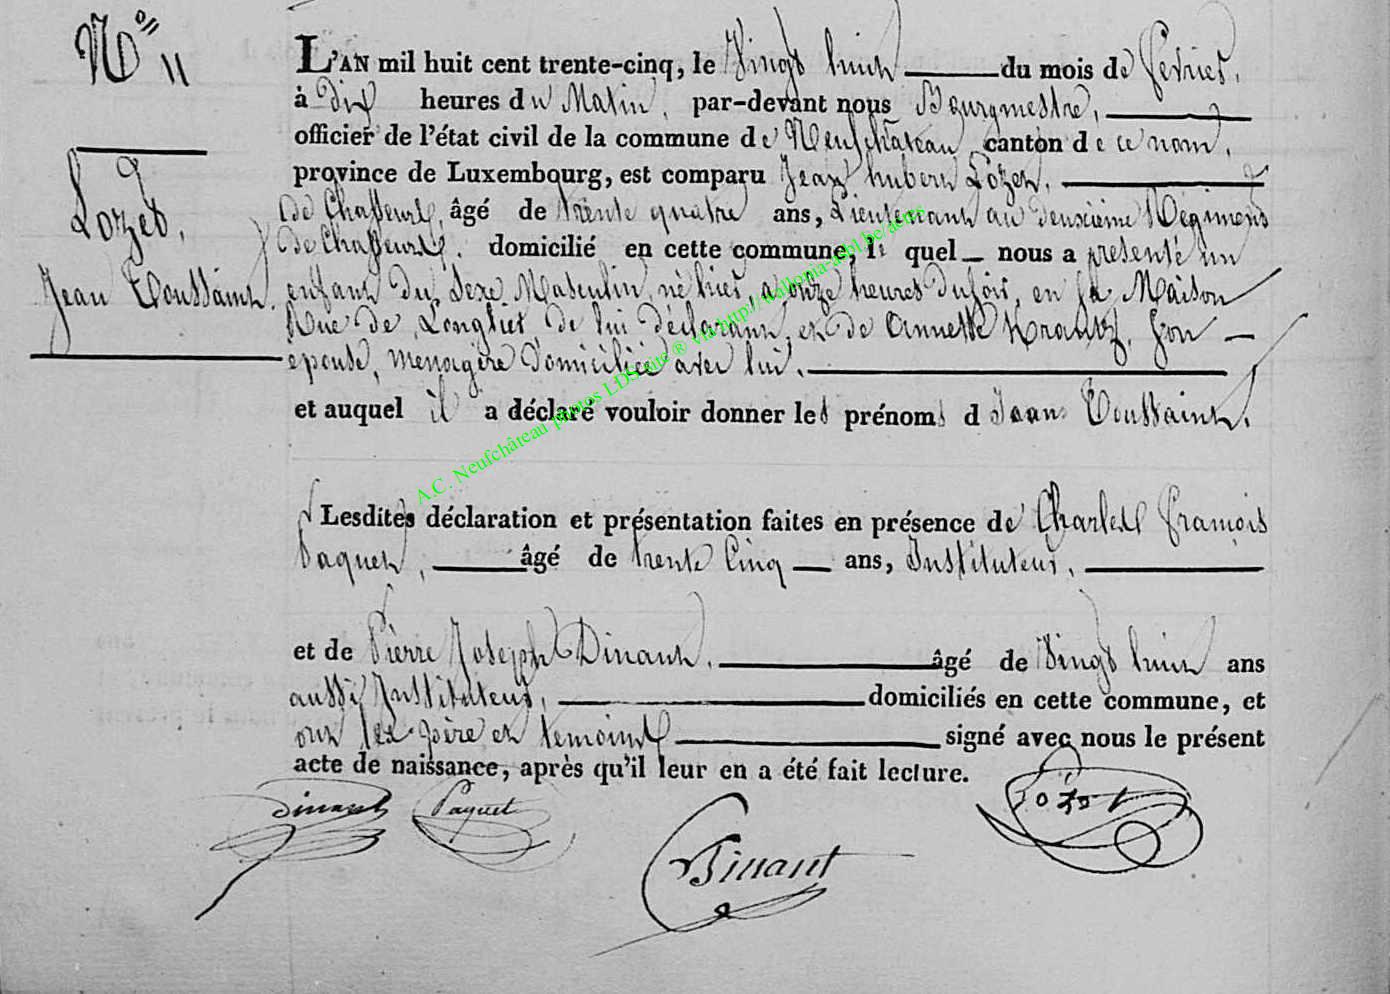 N° 11
Lozet,
Jean Toussaint.
L'AN mil huit cent trente-cinq, le Vingt huit du mois de Février,
à dix heures du Matin, par-devant nous Bourgmestre,
officier de l'état civil de la commune de Neufchâteau canton de ce nom,
province de Luxembourg, est comparu Jean hubert Lozet,
de Chasseurs, âgé de trente quatre ans, Lieutenant au deuxième Régiment
de Chasseurs, domicilié en cette commune, le quel nous a présenté un
enfant du Sexe Masculin né hier, a onze heures du soir, en sa Maison
Rue de Longlier de lui déclarant, et de Annette Krantz, son
épouse, menagère domiciliée avec lui,
et auquel il a déclaré vouloir donner les prénoms d Jean Toussaint,
Lesdites déclaration et présentation faites en présence de Charles François
Paquet, âgé de trente Cinq ans, Instituteur,
et de Pierre Joseph Dinant, âgé de Vingt huit ans
aussi Instituteur, domiciliés en cette commune, et
ont les père et temoins signé avec nous le présent
acte de naissance, après qu'il leur en a été fait lecture.
Dinant Paquet Lozet
Dinant
A.C. Neufchâteau photos LDS site ® via http://wallonia-asbl.be/actes